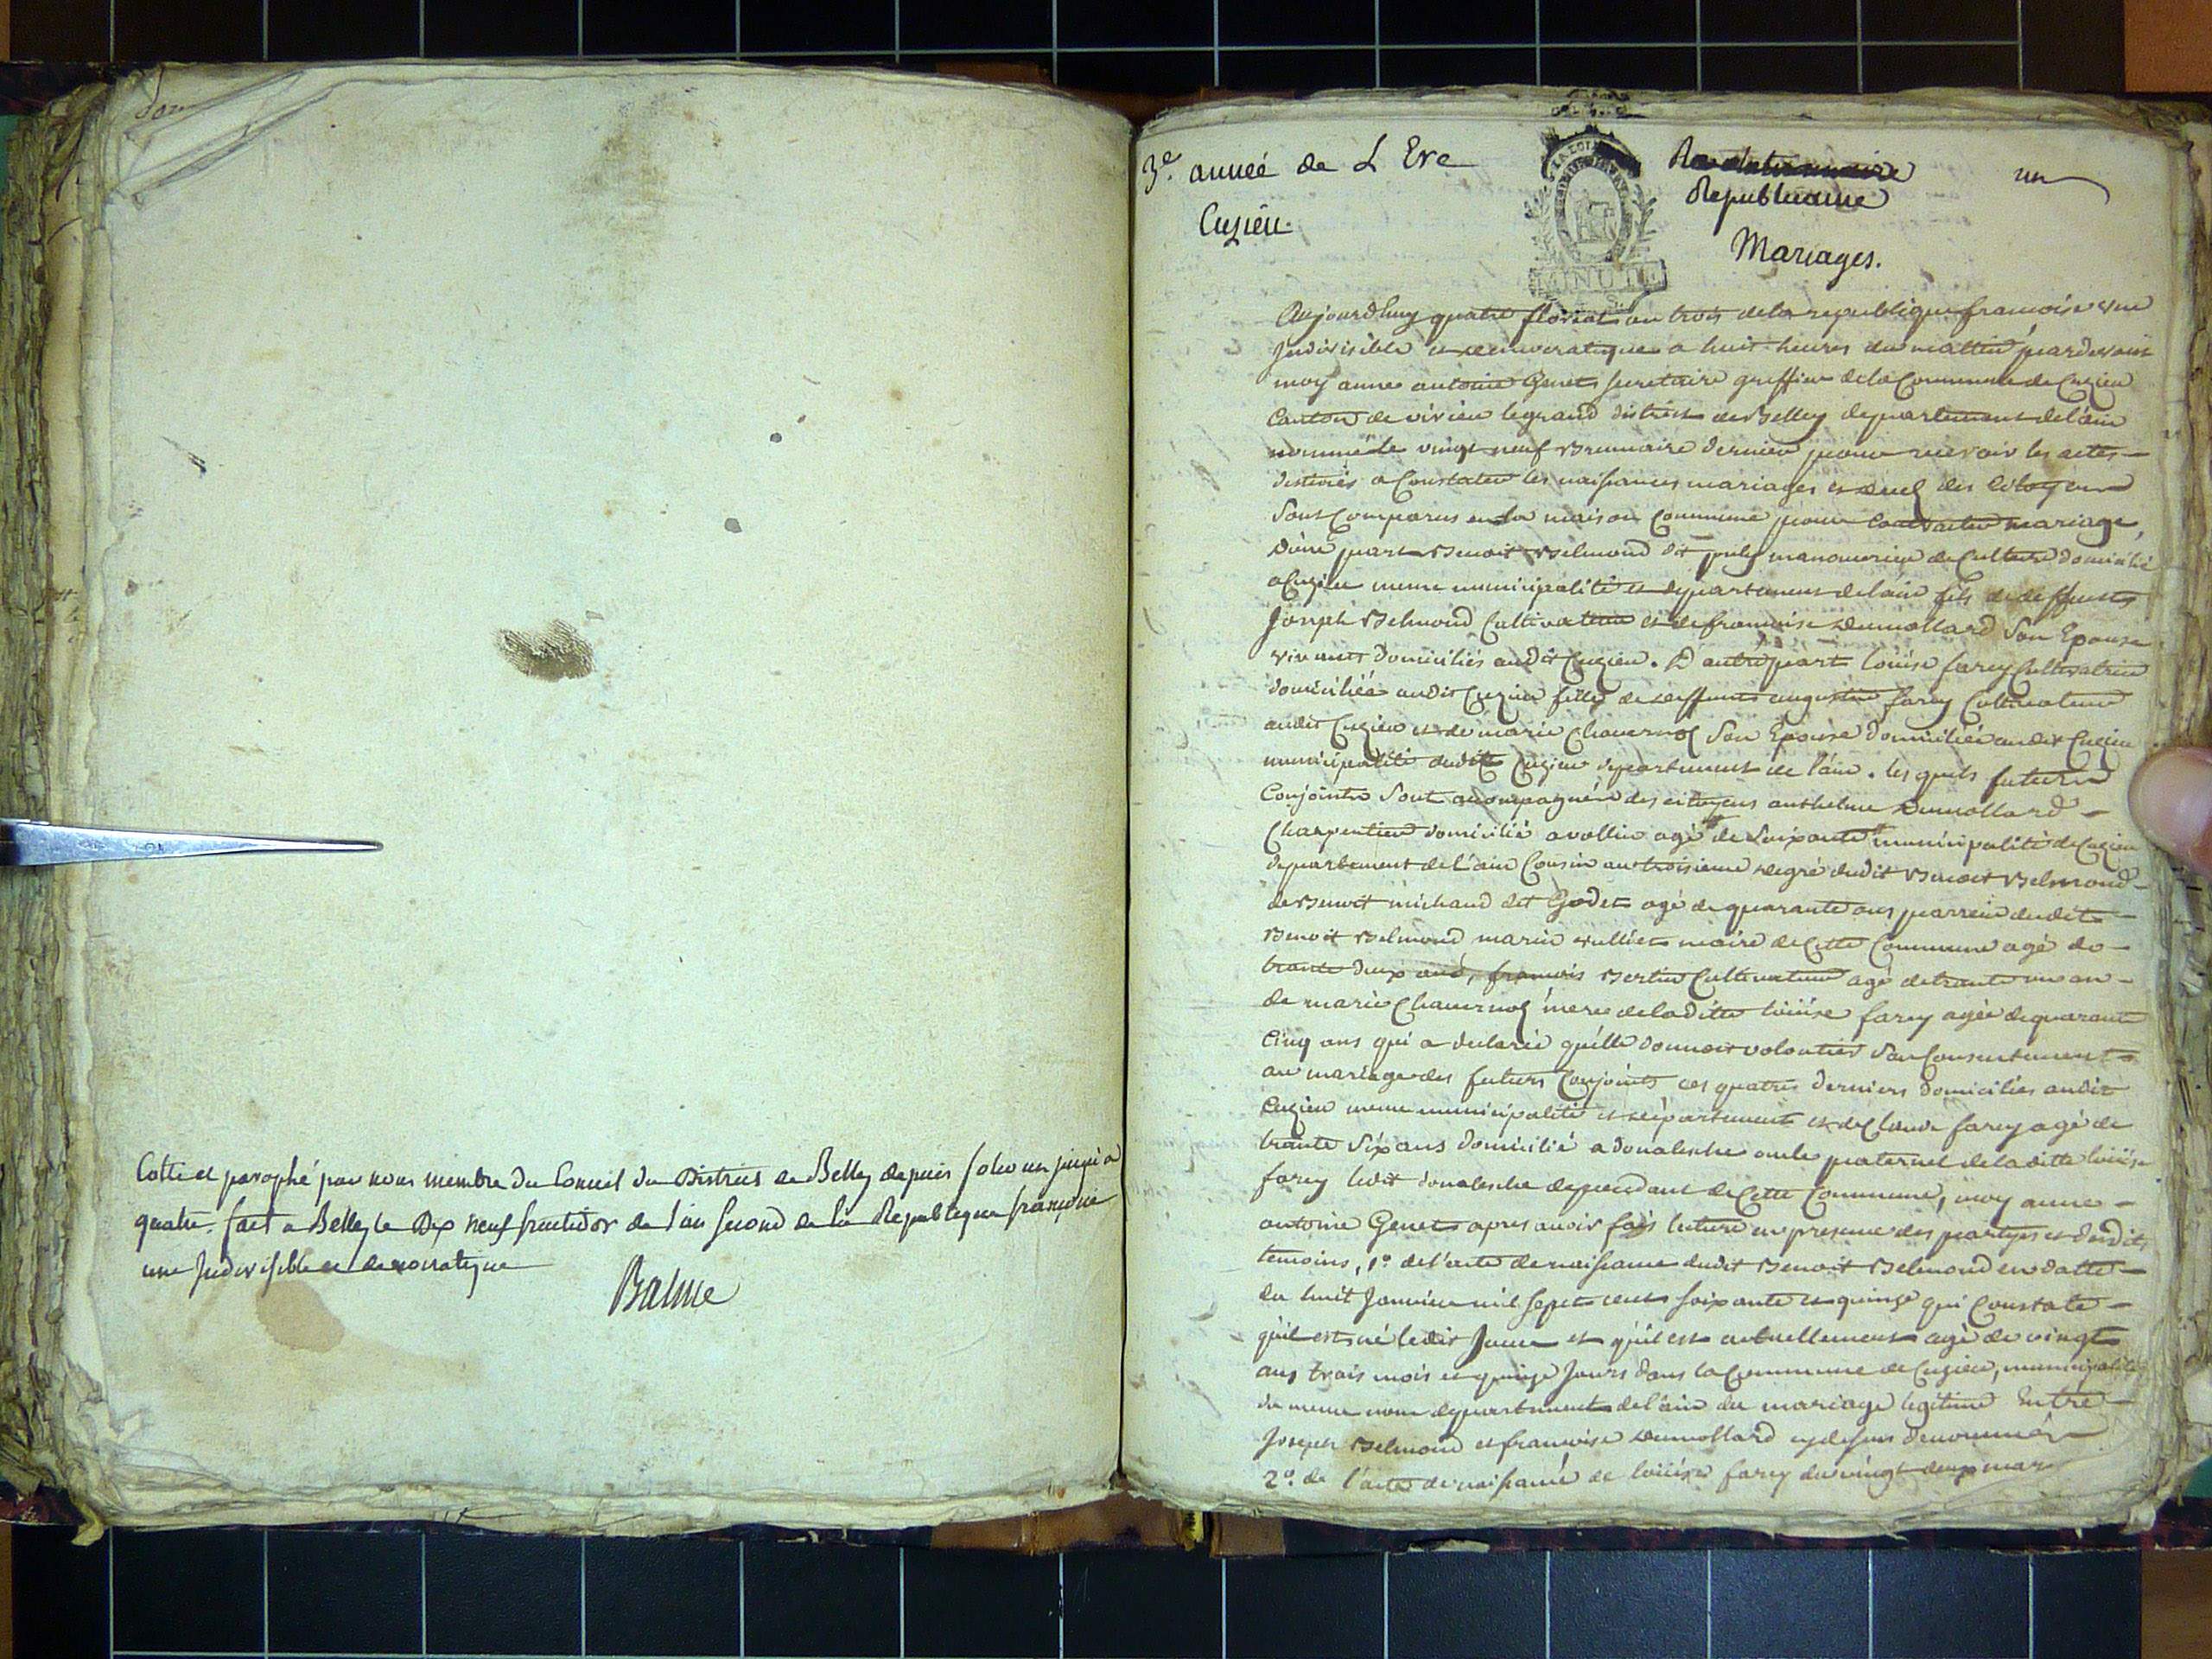 Cotté et parophé par nous membre du Conseil du District de Belley depuis folio un jusqu'a
quatre. fait a Belley le Dix neuf fructidor de l'an second de la Republique françoise
une Indivisible et democratique
Balme
3e. année de L Ere
Republicaine
un
Cuzieu.
Mariages.
MINUTE
Aujourdhuy quatre floreal an trois de la republique francoise une
Indivisible et democratique a huit heures du mattin pardevant
moy anne antoine Genet secretaire greffier de la Commune de Cuzieu
Canton de virieu le grand district de Belley departement de l'ain
nommé le vingt neuf Brumaire dernier pour recevoir les actes
destinés a Constater les naissances mariages et des citoyens
sont Comparus en la maison Commune pour Contracter mariage,
d'une part Benoit Belmond dit manouvrier de Culture domicilié
a Cuzieu meme municipalité et departement de l'ain fils de deffunts
Joseph Belmond Cultivateur et de francoise Dumollard son Epouse
vivants domiciliés audit Cuzieu. D'autre part loüise farcy Cultivatrice
domiciliée audit Cuzieu fille de deffunts augustin farcy Cultivateur
audit Cuzieu et de marie Chavernol son Epouse domiciliée audit Cuzieu
municipalité dudit Cuzieu departement de l'ain. les quels futurs
Conjoints sont accompagnés des citoyens anthelme Dumollard
Charpentier domicilié a vollien agé de soixante municipalité de Cuzieu
departement de l'ain Cousin au troisieme degré dudit Benoit Belmond
de Benoit michaud dit Godet agé de quarante ans parrein dudit
Benoit Belmond marin vulliet maire de Cette Commune agé de
trante deux ans, francois Bertin Cultivateur agé de trante un an
de marie Chavernol mere de laditte loüise farcy agée de quarante
Cinq ans qui a declaré quélle donnoit volontier son Consentement
au mariage des futurs Conjoints ces quatres derniers domiciliés audit
Cuzieu meme municipalité et departement et de Claude farcy agé de
trante six ans domicilié a donalesche oncle paternel de la ditte loüise
farcy ledit donalesche dependant de Cette Commune, moy anne
antoine Genet apres avoir fais lecture en presence des partyes et desdits
temoins, 1º de l'acte de naissance dudit Benoit Belmond en datte
du huit Janvier mil sept cent soixante et quinze qui Constate
qu'il est né ledit Jour et qu'il est actuellement agé de vingt
ans trois mois et quinze Jours dans la Commune de Cuzieu, municipalité
du meme nom departement de l'ain du mariage legitime Entre
Joseph Belmond et francoise Dumollard cydessus denommés
2º. de l'acte de naissance de loüise farcy du vingt deux mars